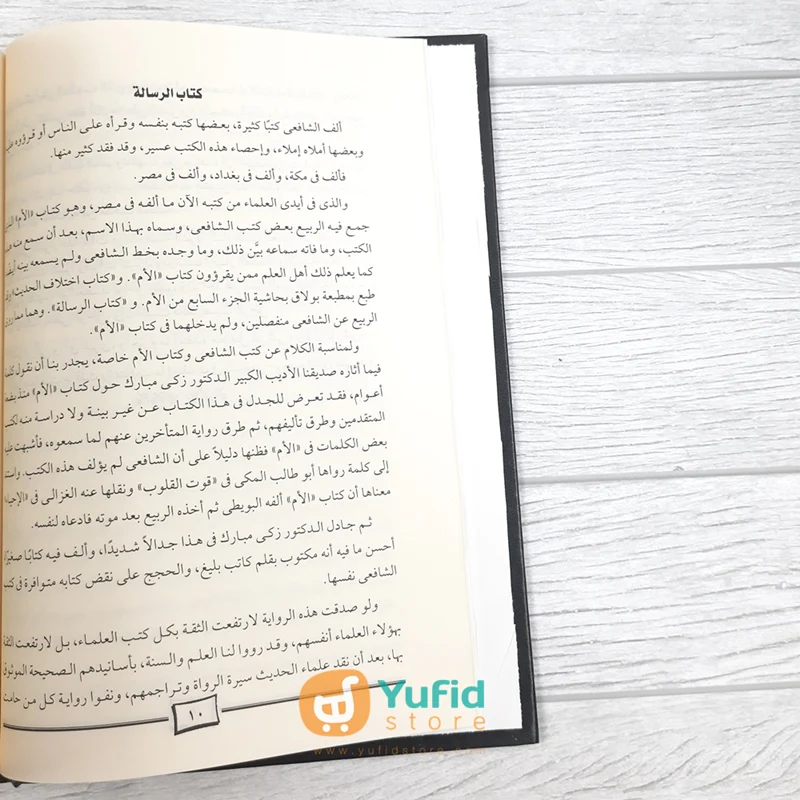 كتاب الرسالة
ألف الشافعى كتبًا كثيرة، بعضها كتبه بنفسه وقرأه على الناس أو قرؤوه
وبعضها أملاه إملاء، وإحصاء هذه الكتب عسير، وقد فقد كثير منها.
فألف فى مكة، وألف فى بغداد، وألف فى مصر.
والذى فى أيدى العلماء من كتبه الآن ما ألفه فى مصر، وهو كتاب «الأم»
جمع فيه الربيع بعض كتب الشافعى، وسماه بهذا الاسم، بعد أن سمع منه
الكتب، وما فاته سماعه بيَّن ذلك، وما وجده بخط الشافعى ولم يسمعه بينه
كما يعلم ذلك أهل العلم ممن يقرؤون كتاب «الأم». و«كتاب اختلاف الحديث»
طبع بمطبعة بولاق بحاشية الجزء السابع من الأم. و «كتاب الرسالة». وهما مما
الربيع عن الشافعى منفصلين، ولم يدخلهما فى كتاب «الأم».
ولمناسبة الكلام عن كتب الشافعى وكتاب الأم خاصة، يجدر بنا أن نقول
فيما أثاره صديقنا الأديب الكبير الدكتور زكى مبارك حول كتاب «الأم» منذ
أعوام، فقد تعرض للجدل فى هذا الكتاب عن غير بينة ولا دراسة منه
المتقدمين وطرق تأليفهم، ثم طرق رواية المتأخرين عنهم لما سمعوه، فأشبهت
بعض الكلمات فى «الأم» فظنها دليلاً على أن الشافعى لم يؤلف هذه الكتب.
إلى كلمة رواها أبو طالب المكى فى «قوت القلوب» ونقلها عنه الغزالى فى
معناها أن كتاب «الأم» ألفه البويطى ثم أخذه الربيع بعد موته فادعاه لنفسه.
ثم جادل الدكتور زكى مبارك فى هذا جدالاً شديدًا، وألف فيه كتابًا صغيرًا
أحسن ما فيه أنه مكتوب بقلم كاتب بليغ، والحجج على نقض كتابه متوافرة فى
الشافعى نفسها.
ولو صدقت هذه الرواية لارتفعت الثقة بكل كتب العلماء، بل لارتفعت الثقة
بهؤلاء العلماء أنفسهم، وقد رووا لنا العلم والسنة، بأسانيدهم الصحيحة الموثوق
بها، بعد أن نقد علماء الحديث سيرة الرواة وتراجمهم، ونفوا رواية كل من حامت
١٠
Yufid
store
www.yufidstore.com